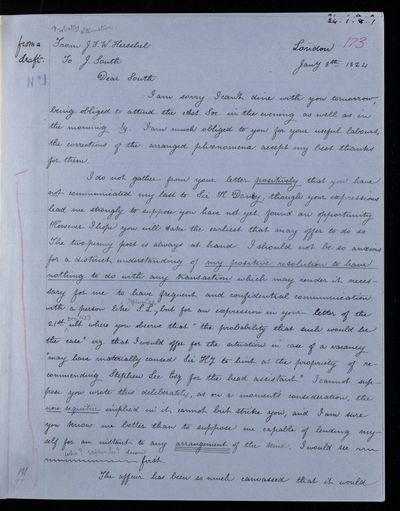 24.1.8.1
173
from a draft.
From J. F. W. Herschel
To J. South
London
Jany 8th 1824
No 1.
Dear South
I am sorry I can't dine with you tomorrow,
being obliged to attend the Ast. Soc. in the evening as well as in
the morning. I am much obliged to you for your useful labours,
the corrections of the arranged phænomena accept my best thanks
for them.
I do not gather from your letter positively that you have
not communicated my last to Sir H Davy, though your expressions
lead me strongly to suppose you have not yet found an opportunity
However I hope you will take the earliest that may offer to do so
The twopenny post is always at hand. I should not be so anxious
for a distinct understanding of my positive resolution to have
nothing to do with any transaction which may render it neces-
sary for me to have frequent and confidential communication
with a person like S.L., but for an expression in your letter of the
21st ult where you observe that "the probability that such would be
the case" viz that I would offer for the situation in case of a vacancy
"may have materially caused Sir H to hint at the propriety of re-
commending Stephen Lee Esq for the head assistant." I cannot sup-
pose you wrote this deliberately, as on a moment's consideration, the
non sequitur implied in it cannot but strike you, and I am sure
you know me better than to suppose me capable of lending my-
self for an instant to any arrangement of the kind. I would see
who? Stephen Lee?
first.
The affair has been so much canvassed that it would